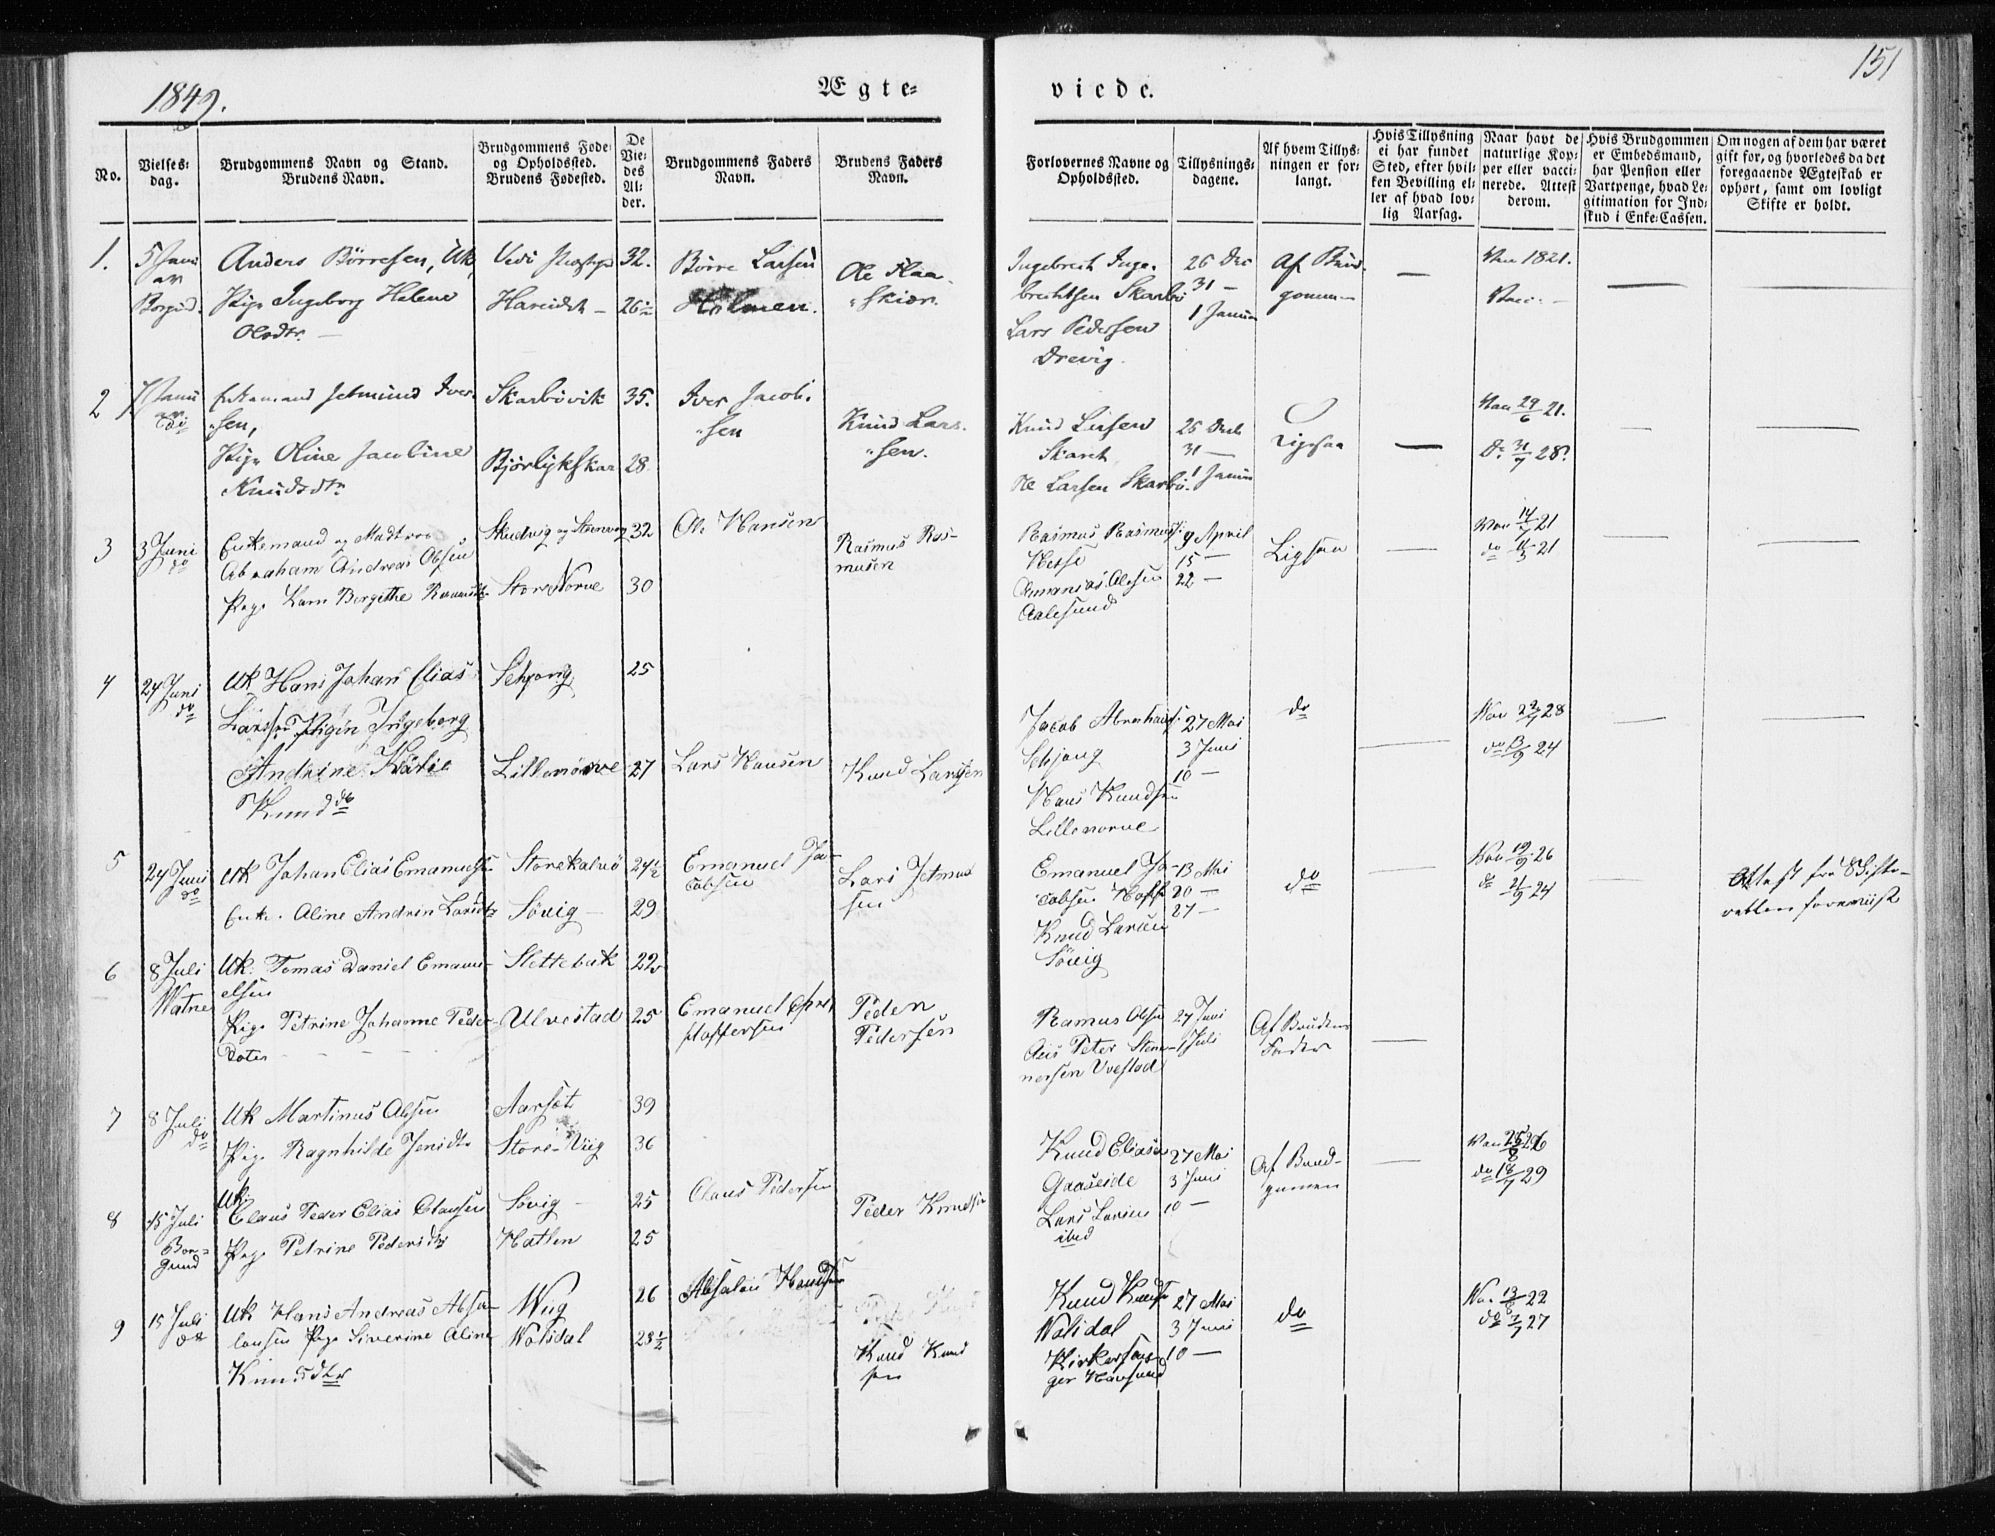 1849.
Ægte=
viede.
151
No.
Vielses-
dag.
Brudgommens Navn og Stand.
Brudens Navn.
Brudgommens Føde-
og Opholdssted.
Brudens Fødested.
De
Vie-
des
Al-
der.
Brudgommens Faders
Navn.
Brudens Faders
Navn.
Forlovernes Navne og
Opholdssted.
Tillysnings-
dagene.
Af hvem Tillys-
ningen er for-
langt.
Hvis Tillysning
ei har fundet
Sted, efter hvil-
ken Bevilling el-
ler af hvad lov-
lig Aarsag.
Naar havt de
naturlige Kop-
per eller vacci-
nerede. Attest
derom.
Hvis Brudgommen
er Embedsmand,
har Pension eller
Vartpenge, hvad Le-
gitimation for Ind-
skud i Enke-Cassen.
Om nogen af dem har været
gift før, og hvorledes da det
foregaaende Ægteskab er
ophørt, samt om lovligt
Skifte er holdt.
1.
5 Janu
ar
Borgund.
Anders Børresen, Uk
Pige Ingeborg Helene
Olsdtr.
32.
Hareidet
26½
Børre Larsen
Holmen.
Ole Flaa-
skiær.
Ingebrecht Inge-
brechtsen Skarbø
Lars Pedersen
Drevig.
26 Dec
31 —
1 Januar
Af Brud-
gommen
—
Vac 1821.
Vacc.
2
7 Januar
do
Enkemand Jetmund Iver-
sen,
Pige Oline Jacobine
Knudsdtr
Skarbøvik
Bjørlykskar
35.
28
Iver Jacob-
sen
Knud Lars-
sen.
Knud
Ole Larsen Skarbø.
26 Decb
31 —
1 Januar
Ligesaa
—
Vac 29/6 21.
Do 31/7 28.
3
3 Juni
do
Enkemand og Madtroe
Abraham Andreas Olsen
Pige Karn Bergithe
Store Norve
32
30
Ole Hansen
Rasmus Ras-
musen
Rasmus Rasmuss.
Hessе
Olsen
Aalesund
9 April
15 —
22 —
Ligesaa
—
Vac 14/7 21
do 11/3 21
4
24 Juni
do
Uk. Hans Johan Elias
Larssen Pigen Ingeborg
Andrine Katrie
Knudsd
Schjong
Lillenørve
25
27
Lars Hansen
Knud Larssen
Jacob Abrahams.
Schjong
Hans Knudsen
Lillenorve
27 Mai
3 Juni
10 —
do
Vac 22/7 28
do 13/9 24
5
24 Juni
do
Uk Johan Elias Emanuels.
Enke. Aline Andrin Larsdtr
Storekalvø
Søvig
24½
29
Emanuel Ja-
cobsen
Lars Jetmun
sen
Emanuel Ja-
cobsen
Knud Larsen
Søvig
13 Mai
20 —
27 —
do
—
Vac 19/9 26
do 21/9 24
Attest fra Skifte-
retten foreviist
6
8 Juli
Watne
Uk. Tomas Daniel Emanu-
elsen
Pige Petrine Johanne Peder-
doter
Slettebak
Ulvestad
22
25
Emanuel Chri
stoffersen
Peder
Pedersen
Rasmus Olsen
Peter Sten-
nersen Uvestad
24 Juni
1 Juli
Af Brudens
Fader
—
7
8 Juli
do
Uk Martinus Olsen
Pige Ragnhilde Jensdtr
Aarsæt
Store-Viig
39
36
Knud Eliasen
Gaaseide
Lars Larsen
ibid
27 Mai
3 Juni
10 —
Af Brud-
gumen
—
Vac 25/8 26
do 18/7 29
8
15 Juli
Bor-
gund
Uk.
Claus Peder Elias Clausen
Pige Petrine Pedersdtr
Søvig
Hatlen
25
25
Claus Pedersen
Peder Knudsen
9
15 Juli
do
Uk Hans Andreas Absa-
lonsen Pige Siverine Aline
Knudsdtr
Wiig
Walsdal
26
28½
Absalon Hansen
Knud Knud
sen
Knud Knuds.
Walsdal
Kirkesan-
ger
27 Mai
3 Juni
10 —
do
Vac 13/8 22
do 7/7 27